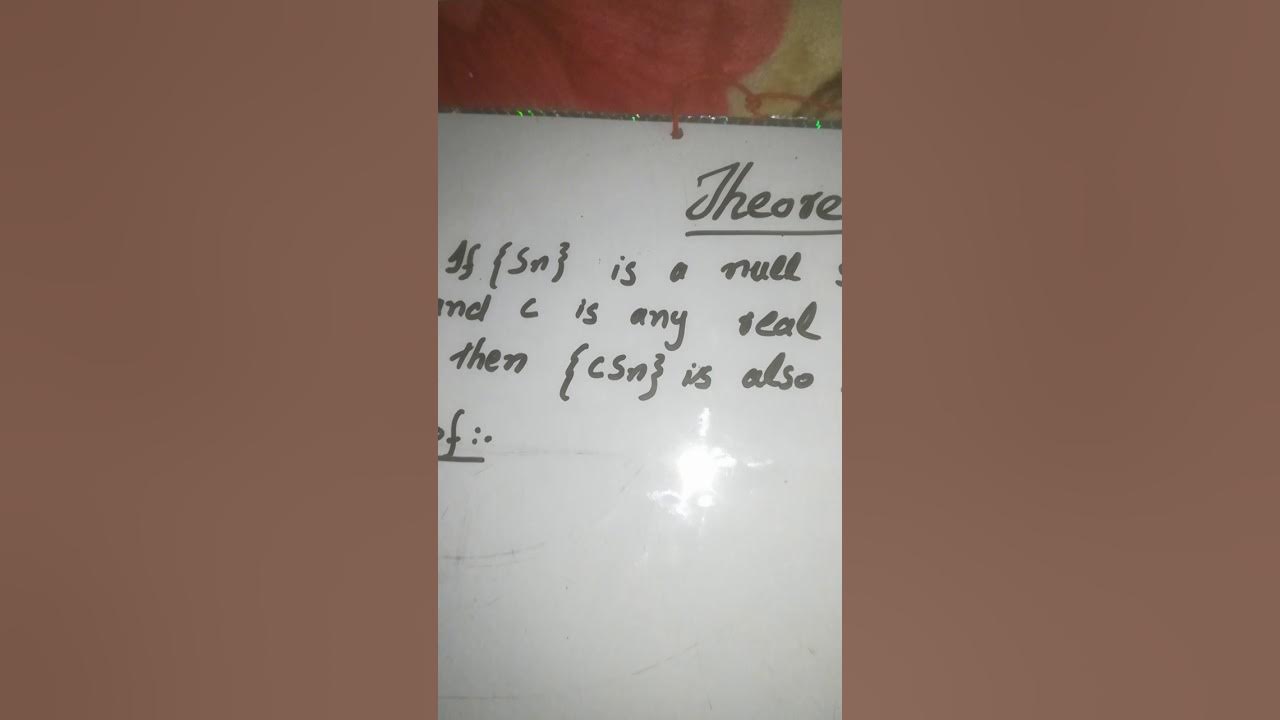 Theore
If {Sn} is a null s
and c is any real
then {CSn} is also
of :.